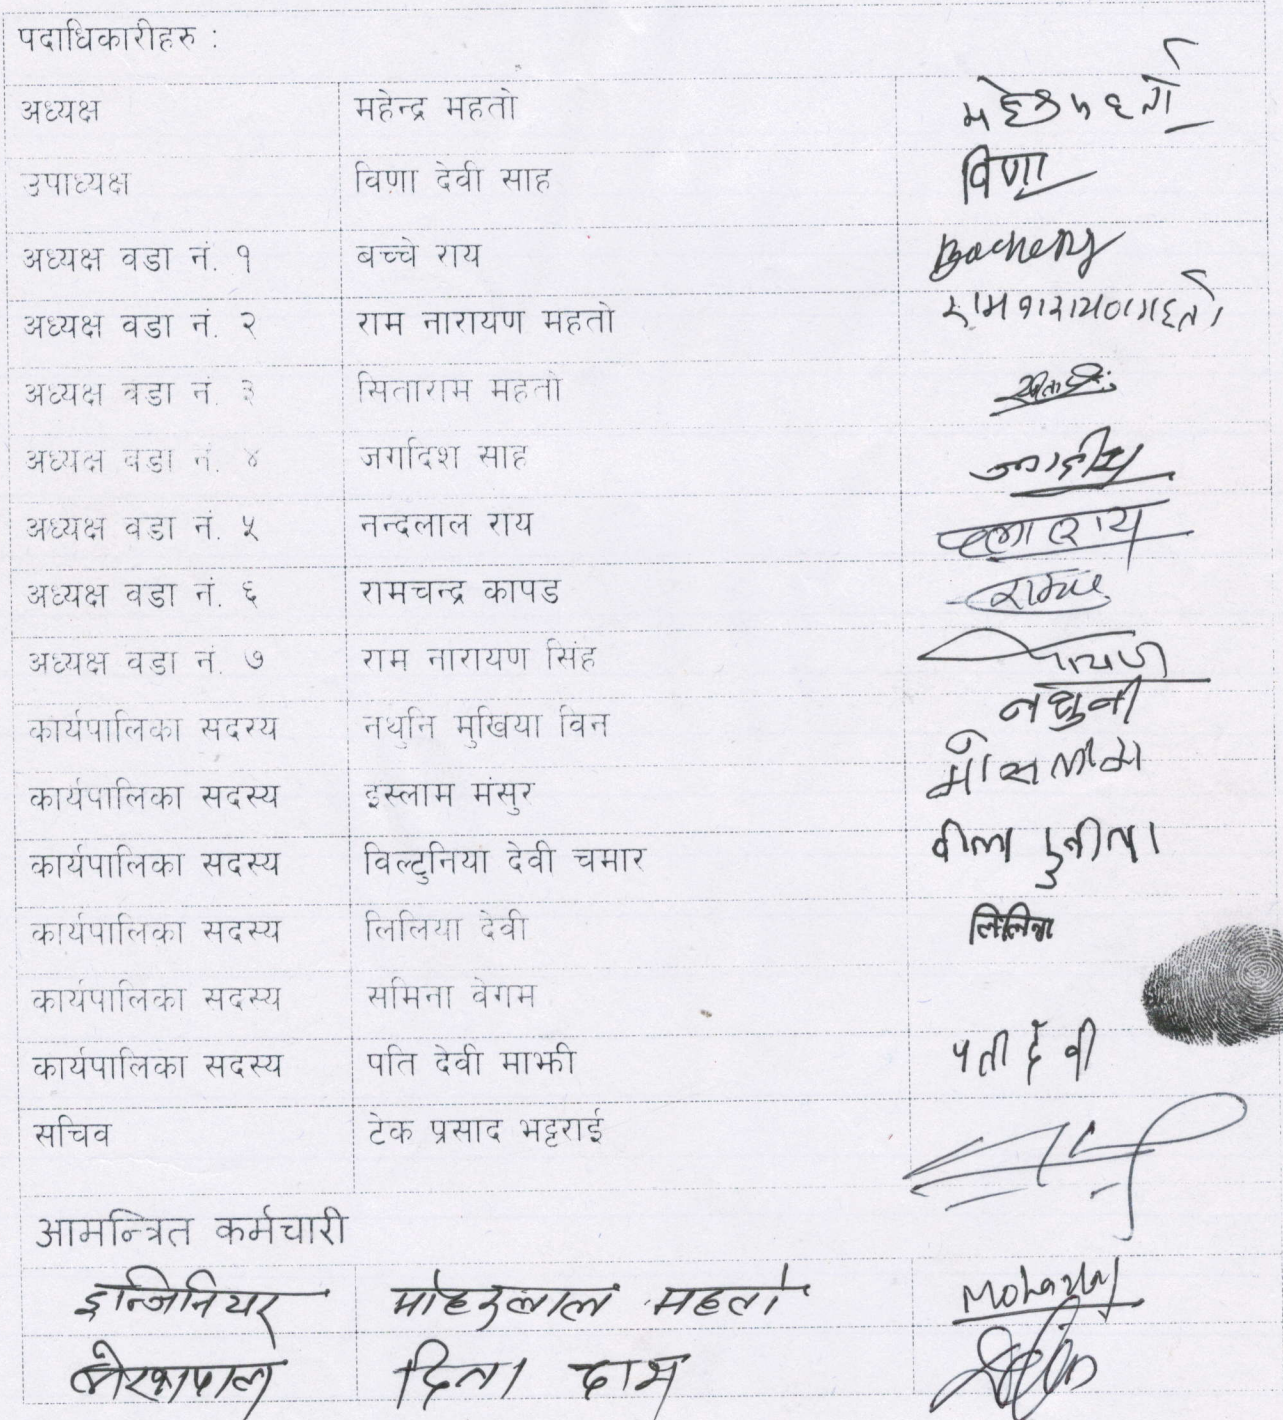 पदाधिकारीहरु :
अध्यक्ष महेन्द्र महतो
उपाध्यक्ष विणा देवी साह विणा
अध्यक्ष वडा नं. १ बच्चे राय
अध्यक्ष वडा नं. २ राम नारायण महतो
अध्यक्ष वडा नं. ३ सिताराम महतो
अध्यक्ष वडा नं. ४ जगदिश साह
अध्यक्ष वडा नं. ५ नन्दलाल राय
अध्यक्ष वडा नं. ६ रामचन्द्र कापड
अध्यक्ष वडा नं. ७ राम नारायण सिंह
कार्यपालिका सदस्य नथुनि मुखिया विन नथुनी
कार्यपालिका सदस्य इस्लाम मंसुर
कार्यपालिका सदस्य विल्टुनिया देवी चमार
कार्यपालिका सदस्य लिलिया देवी
कार्यपालिका सदस्य समिना वेगम
कार्यपालिका सदस्य पति देवी माझी पती देवी
सचिव टेक प्रसाद भट्टराई
आमन्त्रित कर्मचारी
इन्जिनियर महतो
दास